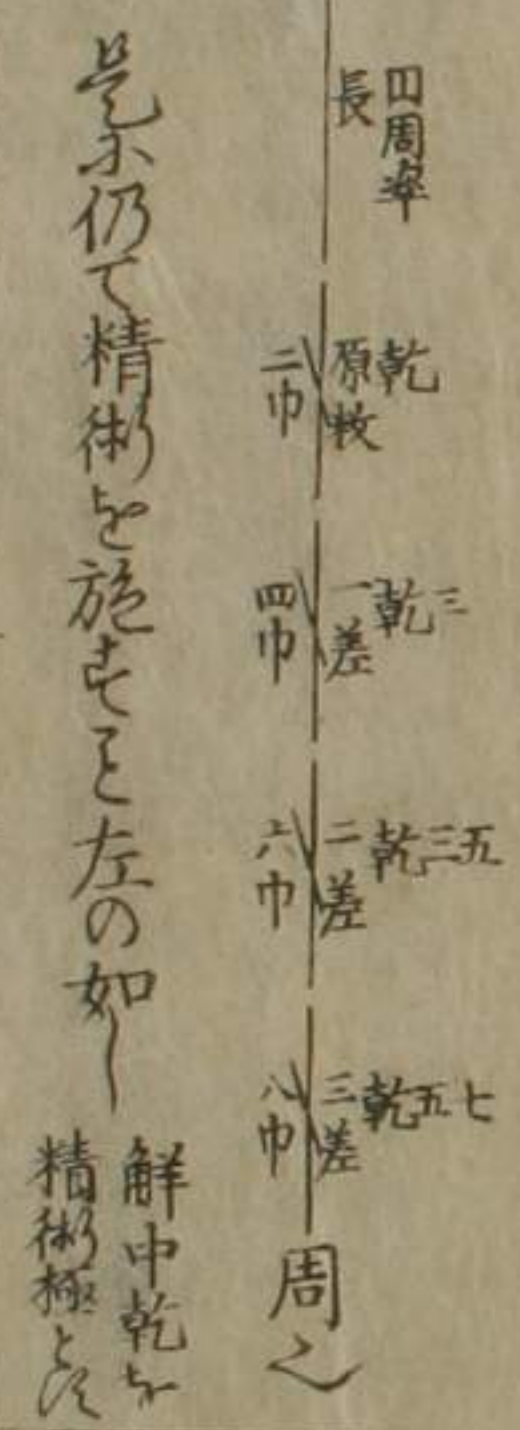 四周率
長
乾
原
二巾
三
乾
一差
四巾
五
三
乾
二差
六巾
七
五
乾
三差
八巾
周
是ニ仍て精術を施すこと左の如し
解中乾を
精術極とす